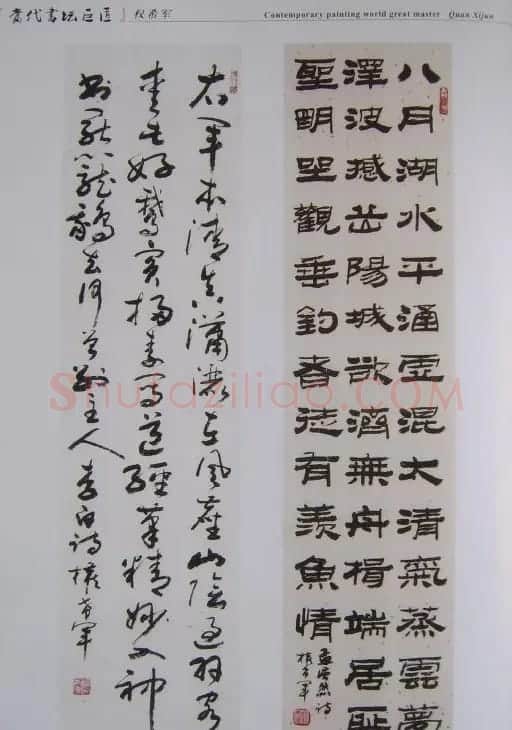 当代书坛巨匠 权希军
Contemporary painting world great master Quan Xijun
八月湖水平涵虛混太清氣蒸雲夢
澤波撼岳陽城欲濟無舟楫端居恥
聖明坐觀垂釣者徒有羨魚情
孟浩然诗
权希军
右军本清真瀟灑在风塵山陰过羽客
爱此好鵝賓掃素写道經筆精妙入神
书罷籠鵝去何曾别主人 李白诗 權希军
Shufaziliao.com